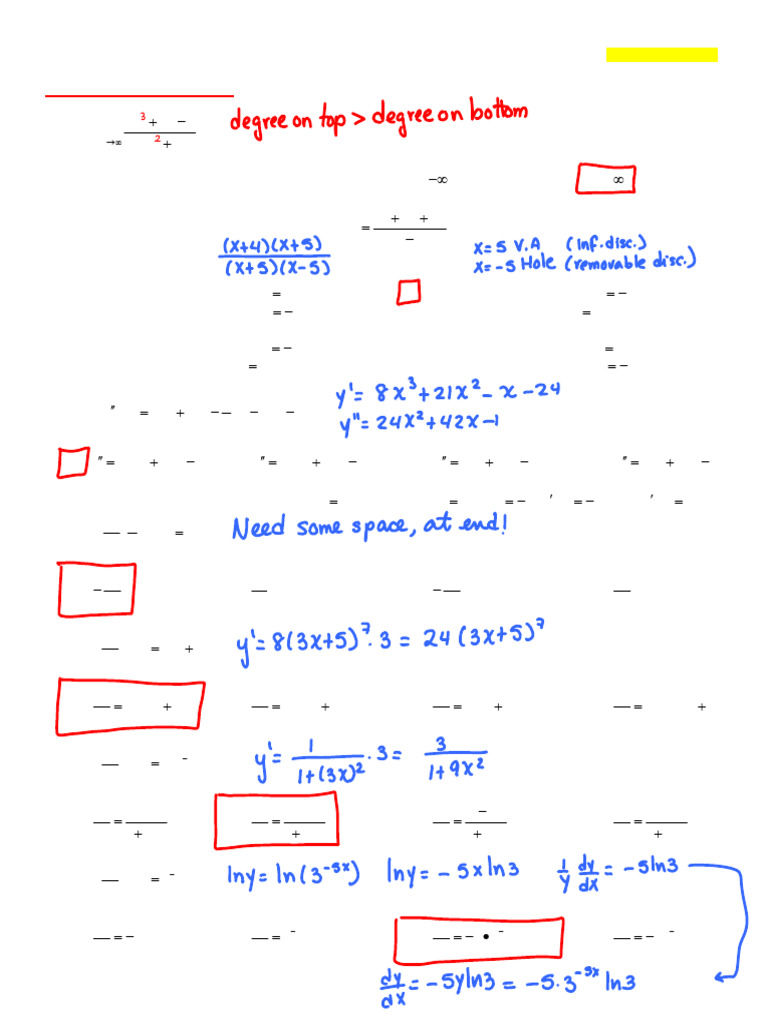 3 + − degree on top > degree on bottom
→∞ 2 +
−∞ ∞
= + +
−
(x+4)(x+5) x=5 V.A (inf. disc.)
(x+5)(x-5) x=-5 Hole (removable disc.)
= = −
= − =
= − =
= = −
y' = 8x³+21x²-x-24
″ = + − — − −
y" = 24x²+42x-1
″ = + − ″ = + − ″ = + − ″ = + −
= = = − ′ = − ′ =
— − = Need some space, at end!
− — — − — —
— = + y'=8(3x+5)⁷·3 = 24(3x+5)⁷
— = + — = + — = + — = +
— = − y' = 1/(1+(3x)²) ·3 = 3/(1+9x²)
— = — = — = − — =
+ + + +
— = − lny=ln(3^-5x) lny=-5xln3 1/y dy/dx = -5ln3
— = − — = − — = − • − — = − −
dy/dx = -5yln3 = -5·3^-5x ln3